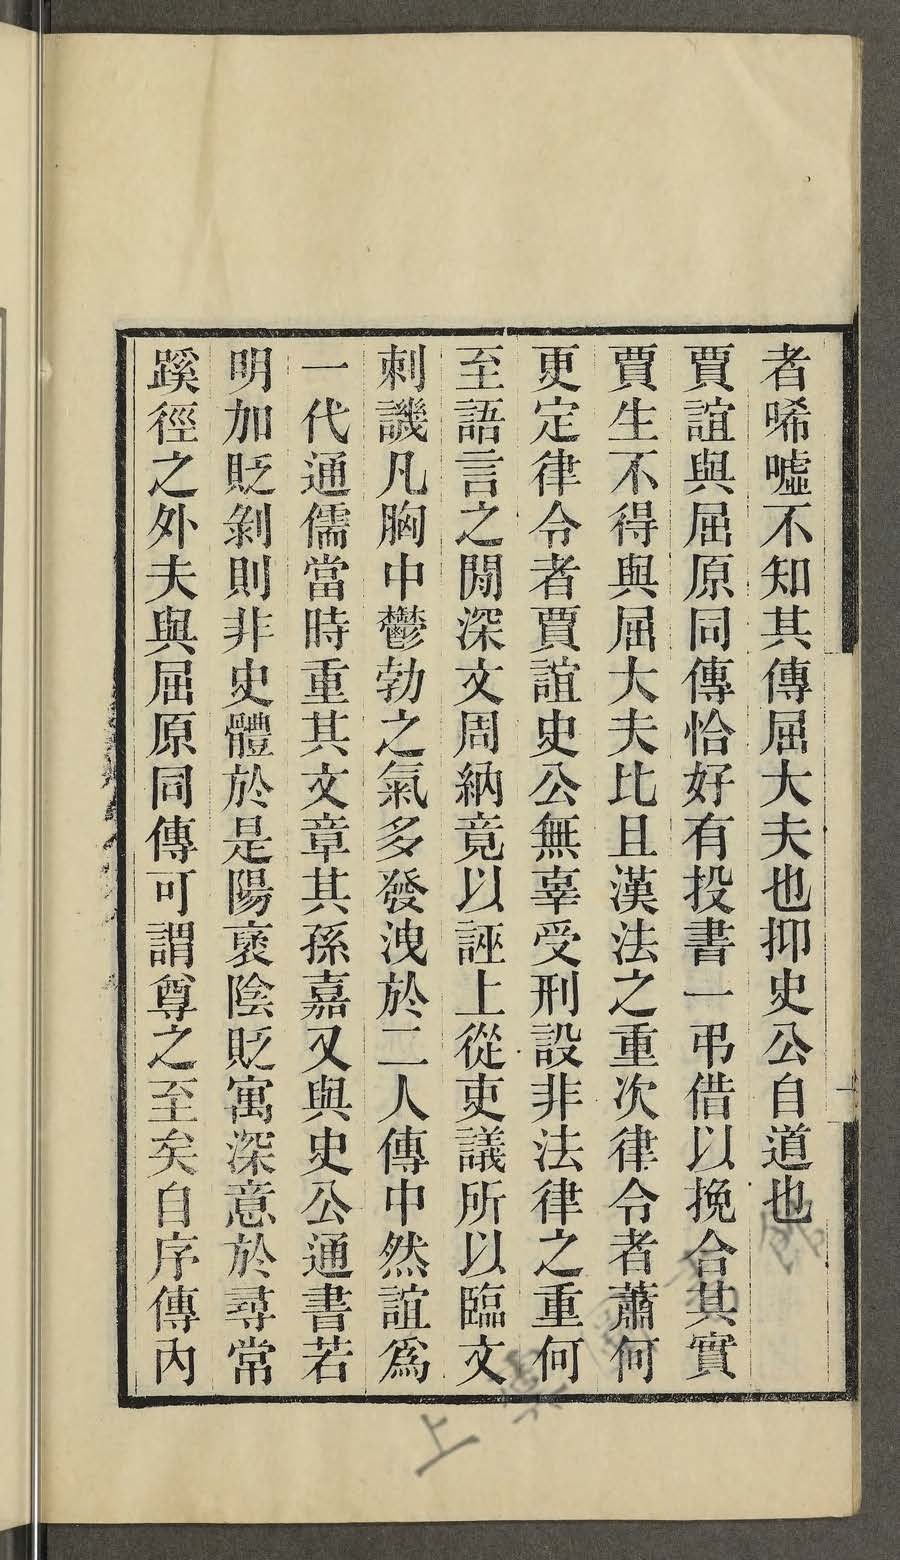 者唏噓不知其傳屈大夫也抑史公自道也
賈誼與屈原同傳恰好有投書一弔借以挽合其實
賈生不得與屈大夫比且漢法之重次律令者蕭何
更定律令者賈誼史公無辜受刑設非法律之重何
至語言之閒深文周納竟以誣上從吏議所以臨文
刺譏凡胸中鬱勃之氣多發洩於二人傳中然誼爲
一代通儒當時重其文章其孫嘉又與史公通書若
明加貶剝則非史體於是陽褒陰貶寓深意於尋常
蹊徑之外夫與屈原同傳可謂尊之至矣自序傳內